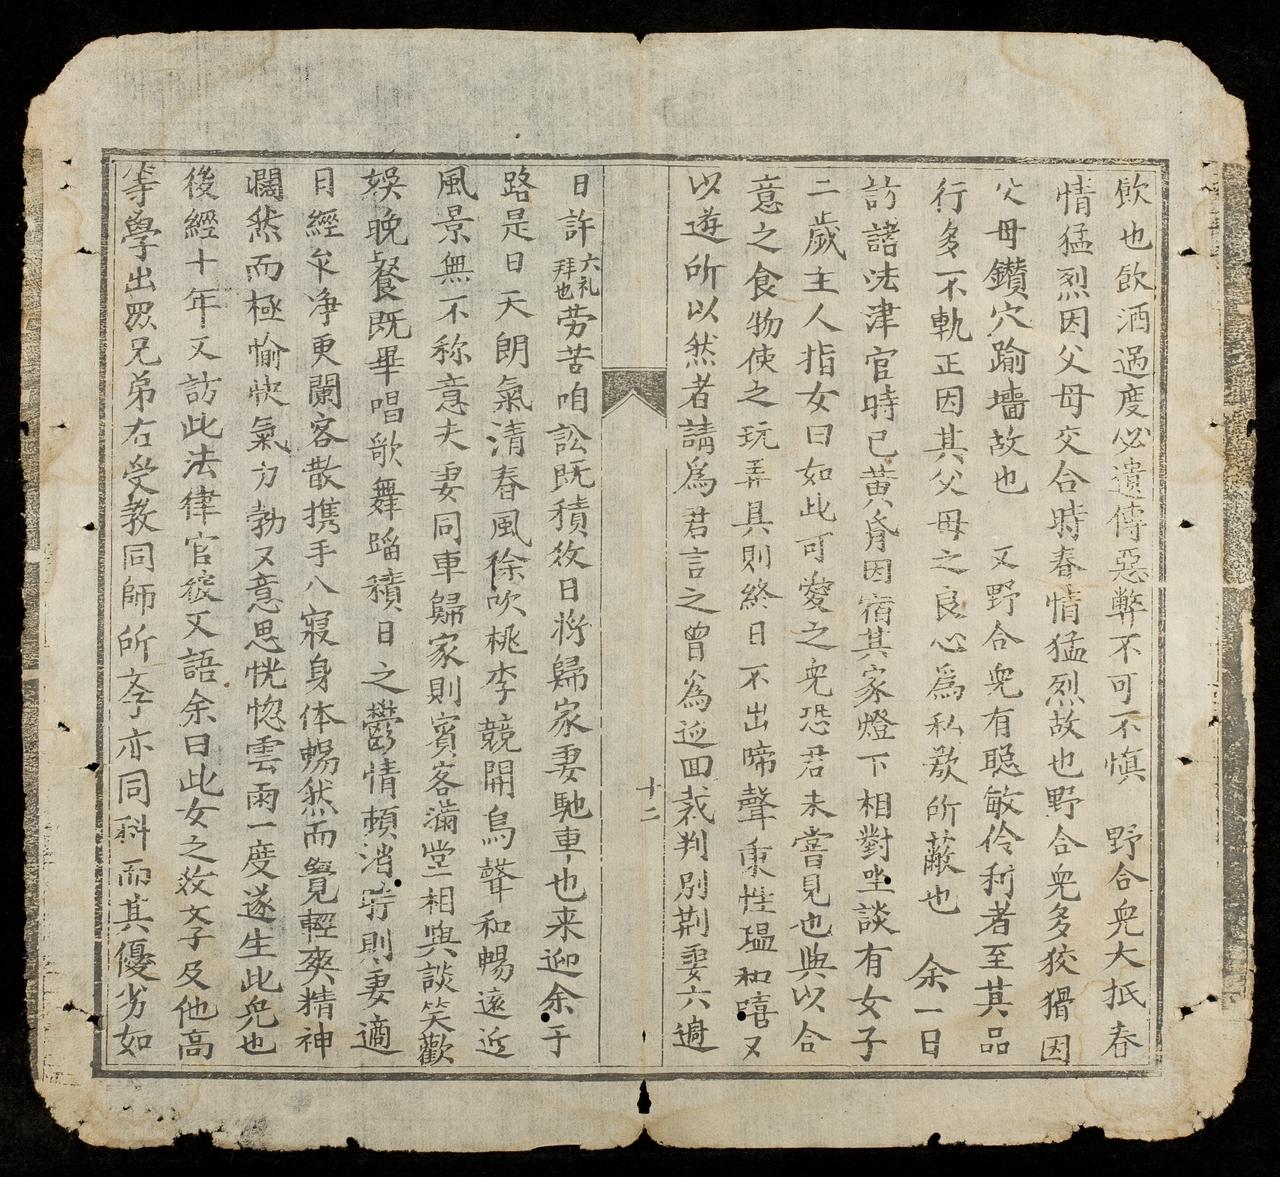 飲也飲酒過度必遺傳惡弊不可不愼　野合兒大抵春
情猛烈因父母交合時春情猛烈故也野合兒多狡猾因
父母鑽穴踰墻故也　又野合兒有聡敏伶利者至其品
行多不軌正因其父母之良心為私歘所蔽也　余一日
訪諸法津官時已黃昏因宿其家燈下相對坐談有女子
二歲主人指女曰如此可愛之兒恐君未嘗見也與以合
意之食物使之玩弄具則終日不出啼聲秉性溫和嘻又
以遊所以然者請爲君言之曾為巡回裁判別荆妻六週
十二
日許六礼拜也勞苦咱訟既積数日將歸家妻馳車也来迎余于
路是日天朗氣清春風徐吹桃李競開鳥聲和暢遠近
風景無不称意夫妻同車歸家則賓客滿堂相與談笑歡
娛晚餐既畢唱歌舞蹈積日之鬱情頓消時則妻適
月經净更闌客散携手入寢身体暢然而覺輕爽精神
爛然而極愉快氣力勃又意思恍惚雲雨一度遂生此兒也
後經十年又訪此法律官彼又語余曰此女之文子及他高
等學出眾兄弟右受教同師所孝亦同科而其優劣如